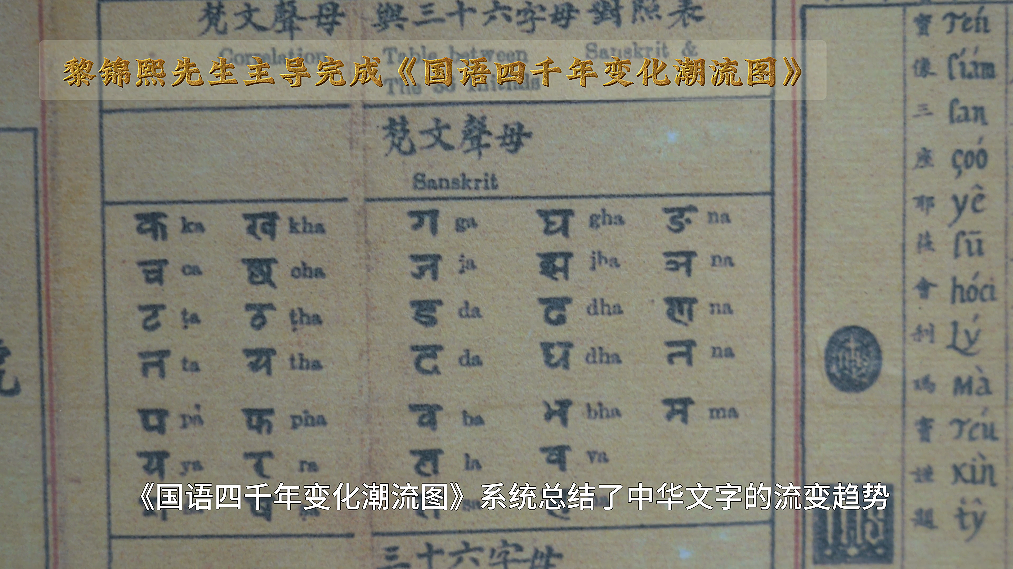 梵文聲母 與三十六字母對照表
Correlation Table between Sanskrit &
The 36 Initials
黎锦熙先生主导完成《国语四千年变化潮流图》
梵文聲母
Sanskrit
क ka ख kha ग ga घ gha ङ na
च ca छ cha ज ja झ jha ञ na
ट ṭa ठ ṭha ड da ढ dha ण na
त ta थ tha द da ध dha न na
प pa फ pha ब ba भ bha म ma
य ya र ra ल la व va
《国语四千年变化潮流图》系统总结了中华文字的流变趋势
三十六字母
寶 rén
像 siám
三 san
座 çoó
耶 yê
會 hóci
利 Lý
瑪 мà
寶 réu
謹 kìn
題 tŷ